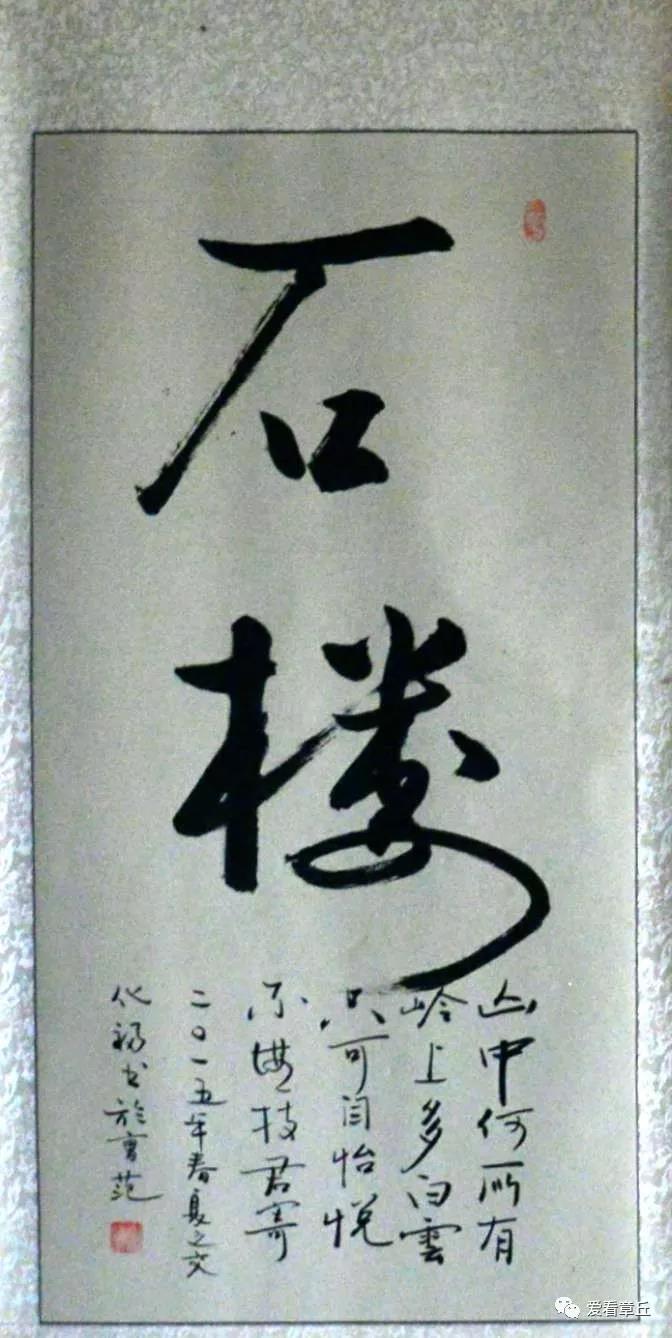 石楼
山中何所有
岭上多白雲
只可自怡悦
不堪持君寄
二〇一五年春夏之交
化福书於曹范
爱看章丘